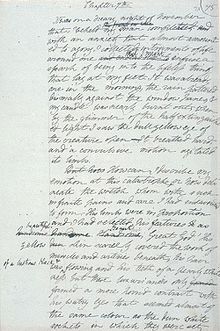 Chapter 7th
It was on a dreary night of November
that I beheld my man completed and
with an anxiety that almost amounted
to agony I collected instruments of life
around me that I might infuse a
spark of being into the lifeless thing
that lay at my feet. It was already
one in the morning, the rain pattered
dismally against the window panes &
my candle was nearly burnt out when
by the glimmer of the half extinguish
ed light I saw the dull yellow eye of
the creature open. It breathed hard
and a convulsive motion agitated
its limbs.
But how can I describe my
emotion at this catastrophe or how deli
neate the wretch whom with such
infinite pains and care I had endeavoured
to form. His limbs were in proportion
and I had selected his features as
handsome. Great God! His
yellow skin scarcely covered the work of
muscles and arteries beneath his hair
of a lustrous black &
was flowing and his teeth of a pearly white
ness but these luxuriances only
formed a more horrid contrast with
his watry eyes that seemed almost of
the same colour as the dun white
sockets in which they were set